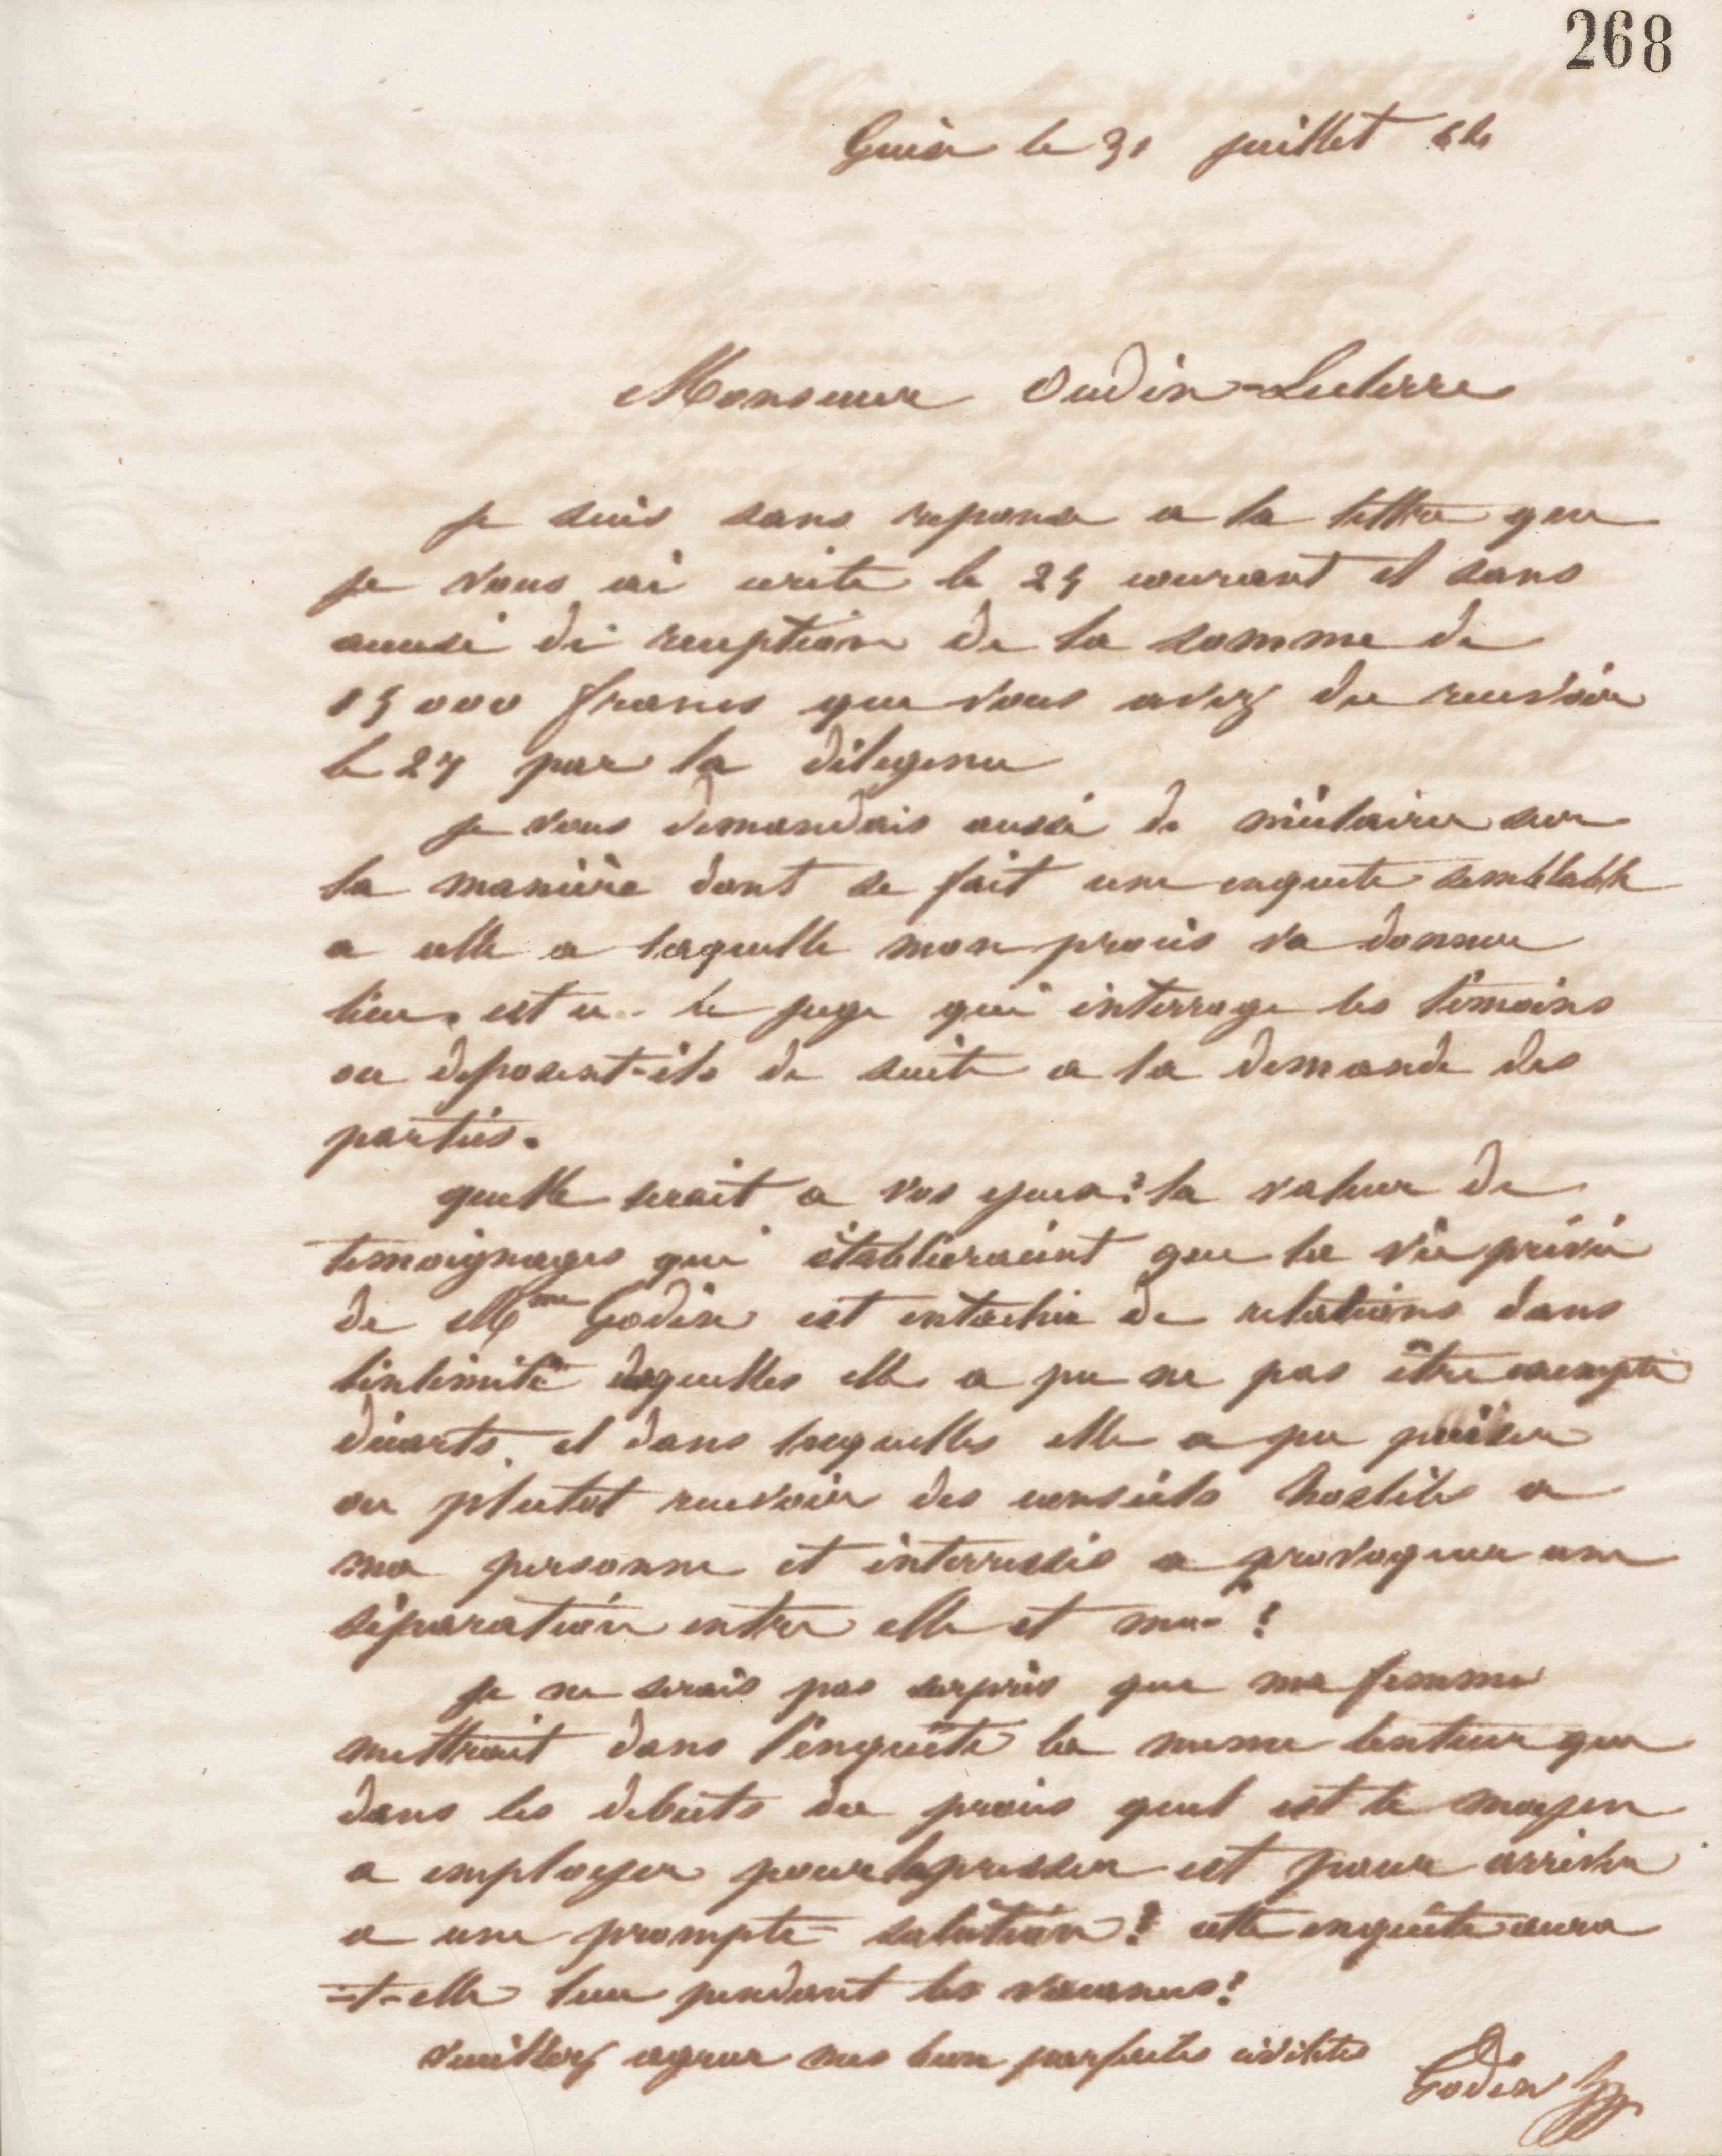 268
Guise le 31 juillet 64
Monsieur Oudin-Leclerre
je suis sans reponse a la lettre que
je vous ai ecrite le 25 courant et sans
accusé de reception de la somme de
15 000 francs que vous avez du recevoir
le 27 par la diligence
je vous demandais aussi de m'eclairer sur
la manière dont se fait une enquete semblable
a celle a laquelle mon procès va donner
lieu. est ce le juge qui interroge les témoins
ou deposent-ils de suite a la demande des
parties.
quelle serait a vos yeux? la valeur de
temoignages qui établieraient que la vie privée
de Mme Godin est entachée de relations dans
l'intimité desquelles elle a pu ne pas être exempte
d'écarts, et dans lesquelles elle a pu puiser
ou plutot recevoir des conseils hostiles a
ma personne et interressés a provoquer une
séparation entre elle et moi?
je ne serais pas surpris que ma femme
mettrait dans l'enquête la meme lenteur que
dans les debuts du procès quel est le moyen
a employer pour la presser et pour arriver
a une prompte solution? cette enquête aura
=t-elle lieu pendant les vacances?
veuillez agreer mes bien parfaites civilités
Godin